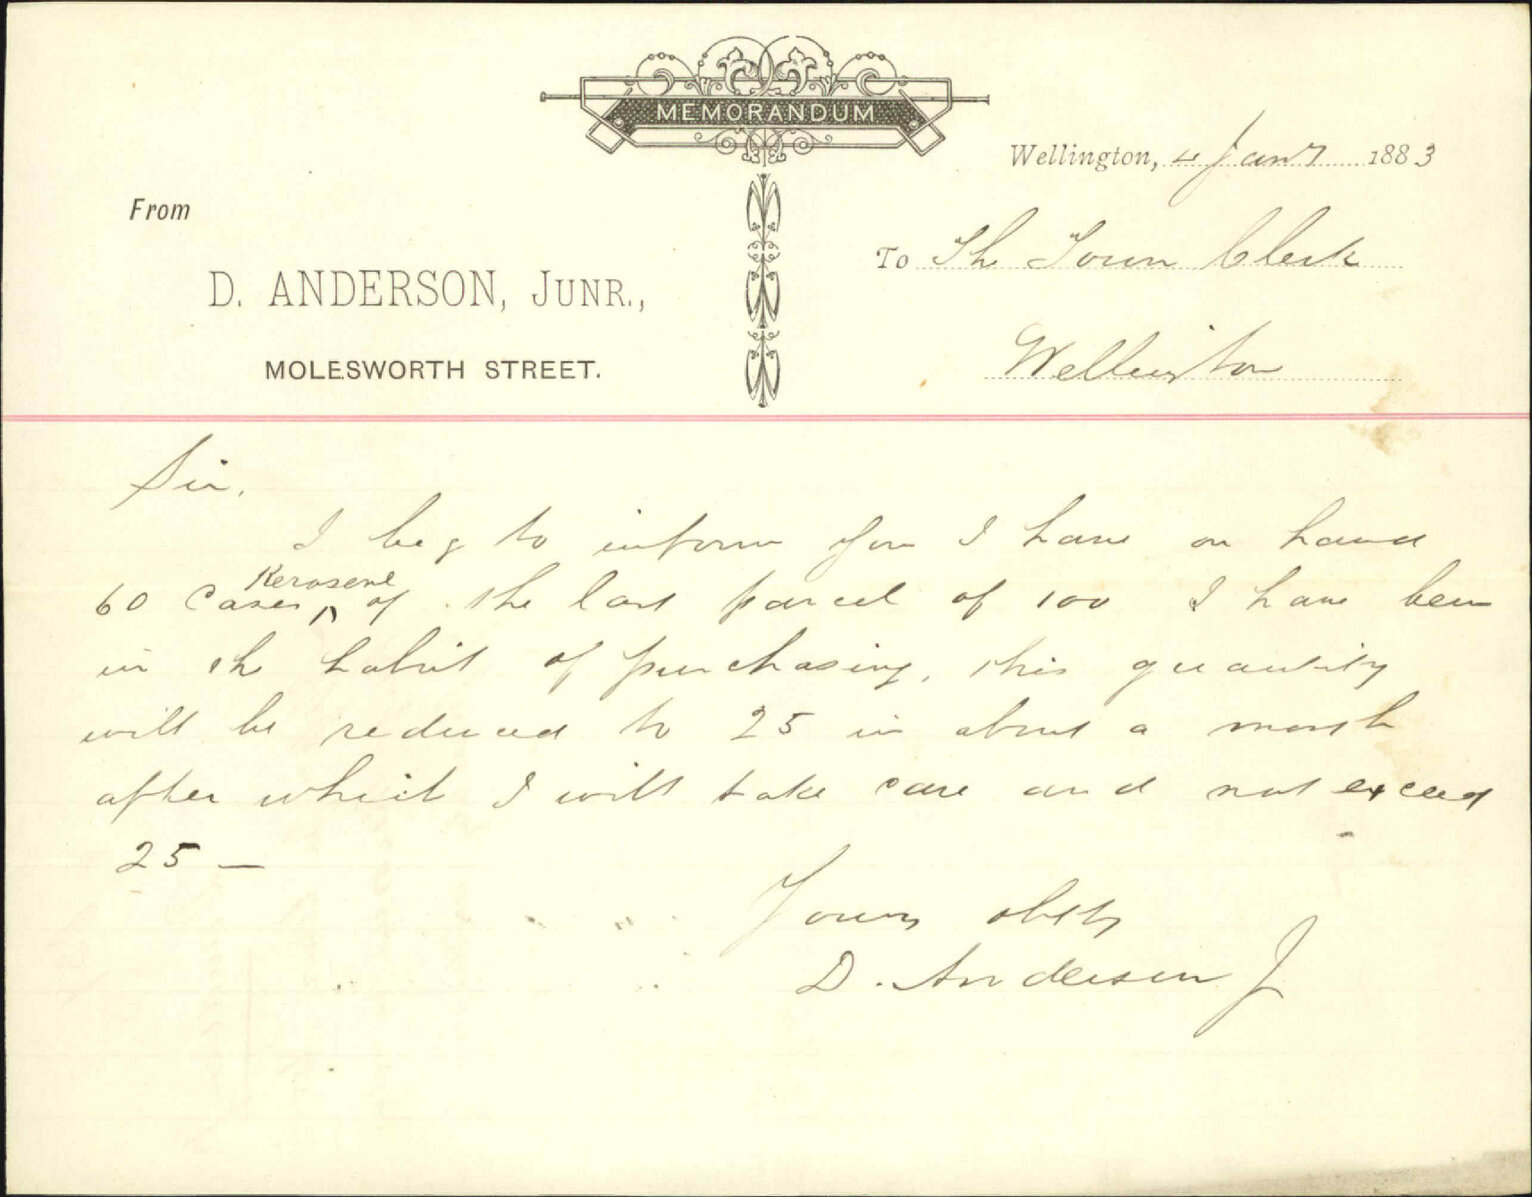 MEMORANDUM
Wellington, 4 Jany 1883
From
To The Town Clerk
D. ANDERSON, JUNR.,
Wellington
MOLESWORTH STREET.
Sir,
I beg to inform you I have on hand
60 Cases Kerosene of the last parcel of 100 I have been
in the habit of purchasing, this quantity
will be reduced to 25 in about a month
after which I will take care and not exceed
25 —
Yours obtly
D. Anderson J